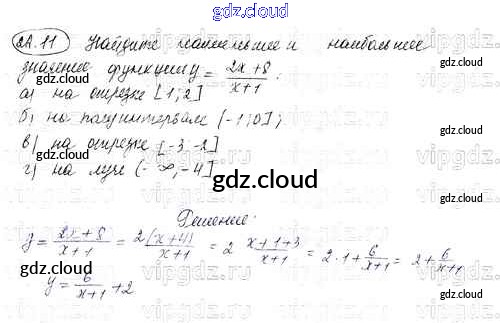 gdz.cloud
22.11 Найдите наименьшее и наибольшее
значение функции y = \frac{2x+8}{x+1} :
а) на отрезке [1; 2]
б) на полуинтервале (-1; 0];
в) на отрезке [-3 -2]
г) на луче (-∞, -4]
gdz.cloud
Решение:
y = \frac{2x+8}{x+1} = \frac{2(x+4)}{x+1} = 2 \frac{x+1+3}{x+1} = 2·1 + \frac{6}{x+1} = 2 + \frac{6}{x+1}
gdz.cloud gdz.cloud
y = \frac{6}{x+1} + 2
gdz.cloud